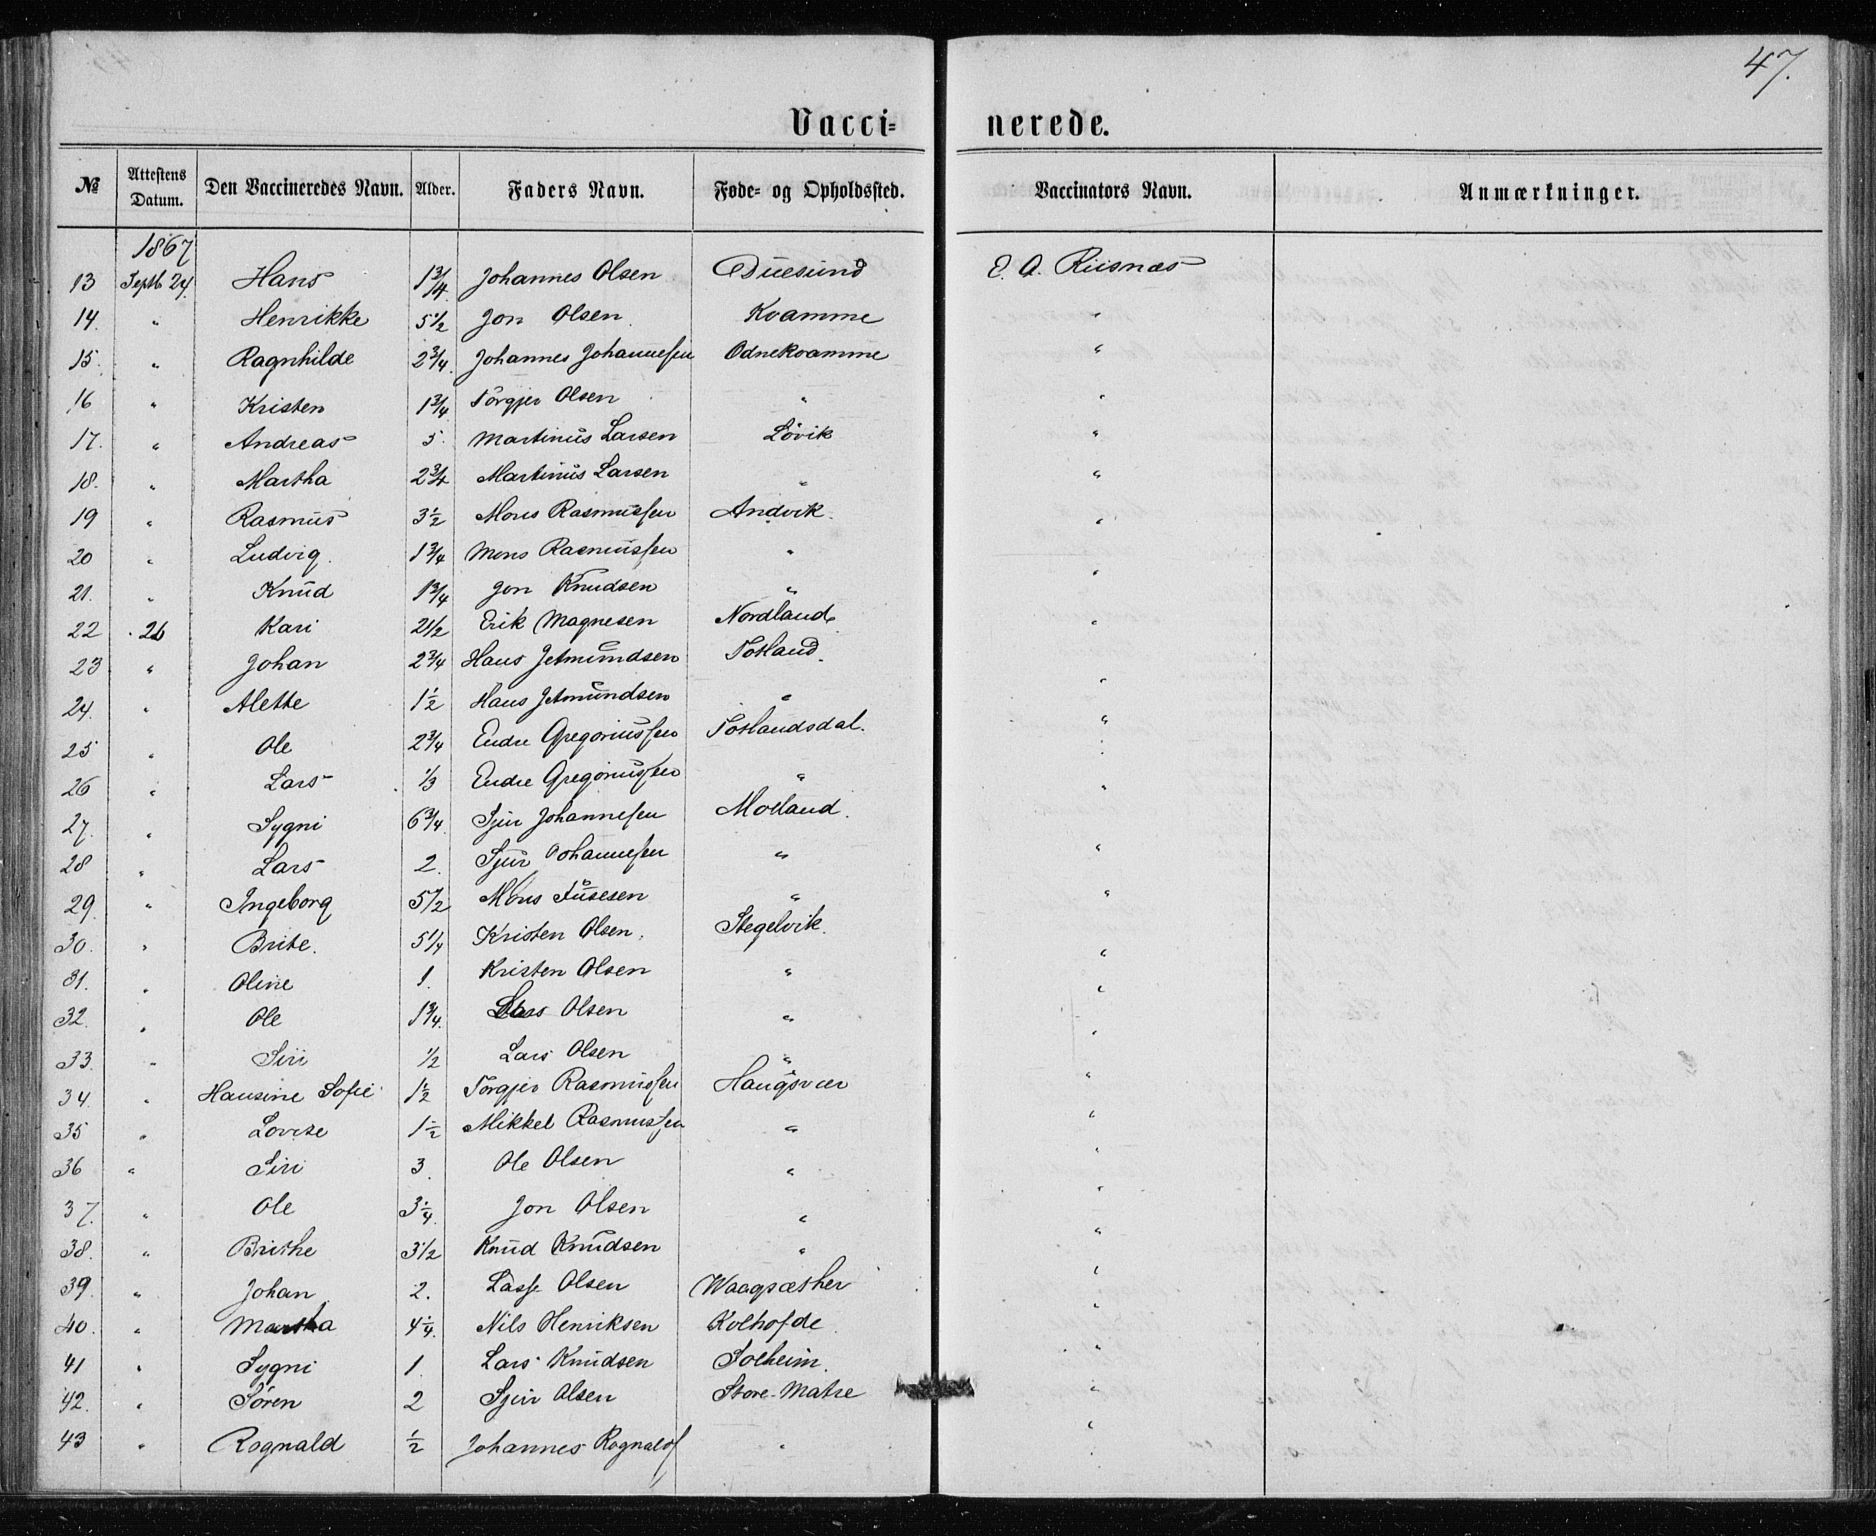 47.
Vaccinerede.
№ | Attestens Datum. | Den Vaccineredes Navn. | Alder. | Faders Navn. | Føde- og Opholdssted. | Vaccinators Navn. | Anmærkninger.
1867
13 Septb 24. Hans 1 3/4 Johannes Olsen Duesund E. A. Riisnæs
14. " Henrikke 5 1/2 Jon Olsen Kvamme "
15. " Ragnhilde 2 3/4. Johannes Johannesen Odnekvamme "
16 " Kristen 1 3/4 Törgjer Olsen " "
17. " Andreas 5. Martinus Larsen Lövik "
18. " Martha 2 3/4 Martinus Larsen " "
19 " Rasmus 3 1/2 Mons Rasmussen Andvik. "
20 " Ludvig. 1 3/4 Mons Rasmussen "
21. " Knud 1 3/4 Jon Knudsen " "
22 . 26 Kari 2 1/2 Erik Magnesen Nordland "
23 " Johan 2 3/4 Hans Jetmundsen Totland.
24. " Alette 1 1/2 Hans Jetmundsen " "
25 " Ole 2 3/4 Endre Gregoriussen Totlandsdal. "
26 " Lars 1/3 Endre Gregoriussen " "
27. " Sygni 6 3/4. Sjur Johannesen Moland.
28 " Lars 2. Sjur Johannesen " "
29. " Ingeborg 5 1/2 Mons Fusesen " "
30. " Brite. 5 1/4 Kristen Olsen. Stegelvik. "
31. " Oline 1. Kristen Olsen " "
32. " Ole 1 3/4. Lars Olsen " "
33. " Siri 1/2 Lars Olsen " "
34. " Hansine Sofie 1 1/2 Torgjer Rasmussen Haugsvær "
35 " Lovise 1 1/2 Mikkel Rasmussen " "
36 " Siri 3. Ole Olsen " "
37. " Ole 3 1/4. Jon Olsen " "
38. " Brithe 3 1/2 Knud Knudsen " "
39. " Johan 2. Lasse Olsen Waagsæther "
40. " Martha 4 1/4. Nils Henriksen Kolhofde "
41 " Sygni 1. Lars Knudsen Solheim. "
42. " Sören 2 Sjur Olsen Store-Matre "
43 " Rognald 1/2 Johannes Rognalds " "